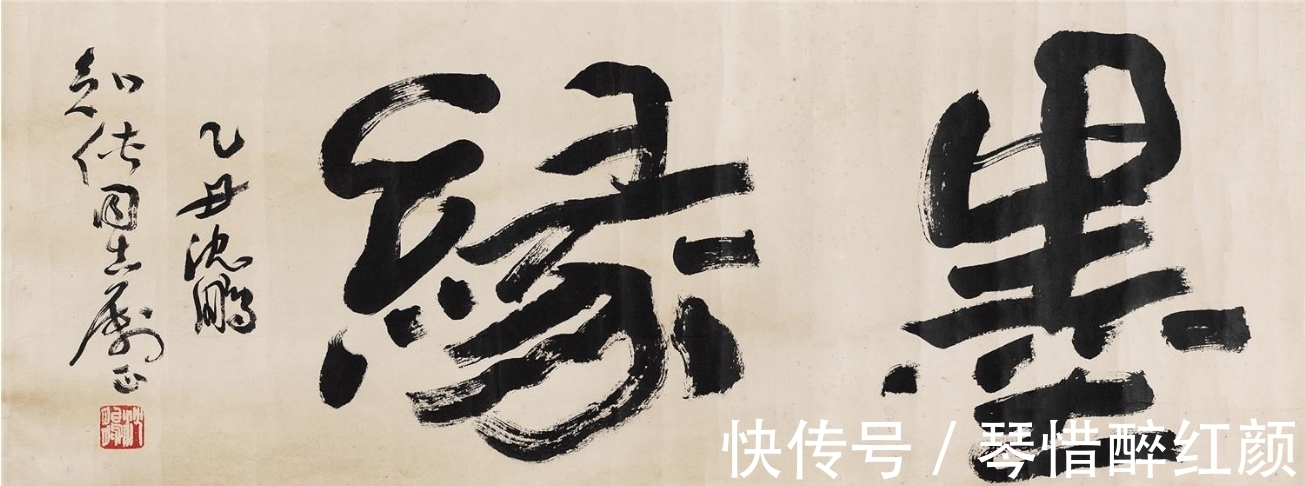 墨緣
乙丑沈鵬
知 同志 正
沈鵬
快传号 / 琴惜醉红颜